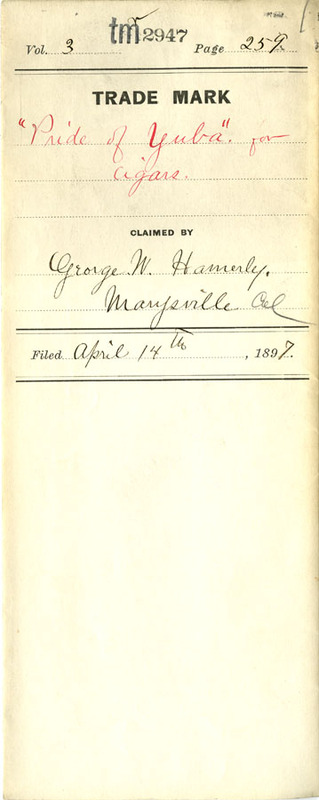 tm 2947
Vol. 3 Page 259
TRADE MARK
"Pride of Yuba". for
Cigars.
CLAIMED BY
George W. Hamerly,
Marysville Cal
Filed April 14th, 1897.